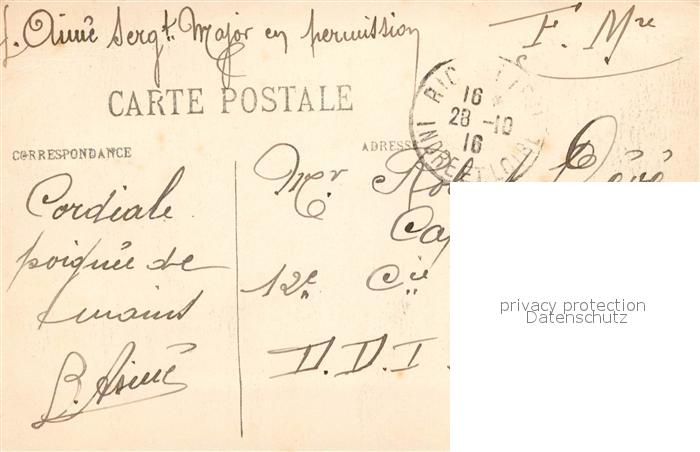 Aimé Sergt Major en permission
F. Mre
CARTE POSTALE
RIC
16
28-10
16
INDRE-ET-LOIRE
CORRESPONDANCE
ADRESS
Mr
Cordiale
poignée de
mains
12e Cie
D. D. I.
privacy protection
Datenschutz